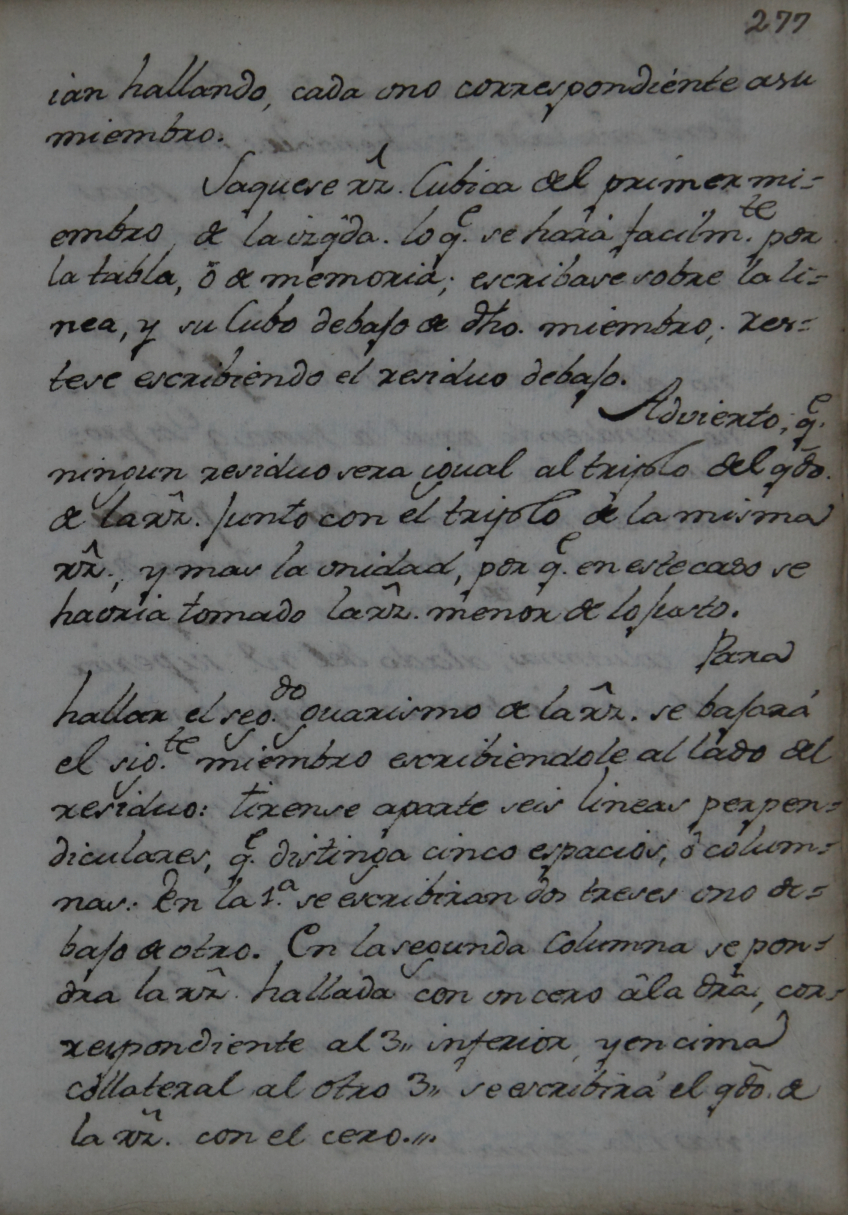 277
ian hallando, cada uno correspondiente asu
miembro.
Saquese rẑ. Cubica del primer mi=
embro de la izqda. lo q.e se hará facilm.te por
la tabla, ô de memoria; escribase sobre la li=
nea, y su Cubo debajo de dho. miembro; res=
tese escribiendo el residuo debajo.
Advierto, q.e
ningun residuo sera igual al triplo del qdo.
de la rẑ. junto con el triplo de la misma
rẑ., y mas la unidad, por q.e en este caso se
havria tomado la rẑ. menor de lo justo.
Para
hallar el seg.do guarismo de la rẑ. se bajará
el sig.te miembro escribiendole al lado del
residuo: tirense aparte seis lineas perpen=
diculares, q.e distinga cinco espacios, ô colum=
nas. En la 1.a se escribiran dos treses uno de=
bajo de otro. En la segunda Columna se pon=
dra la rẑ. hallada con un cero â la dra., cor=
respondiente al 3,, inferior, y encima
collateral al otro 3,, se escribirá el qdo. de
la rẑ. con el cero.,,.